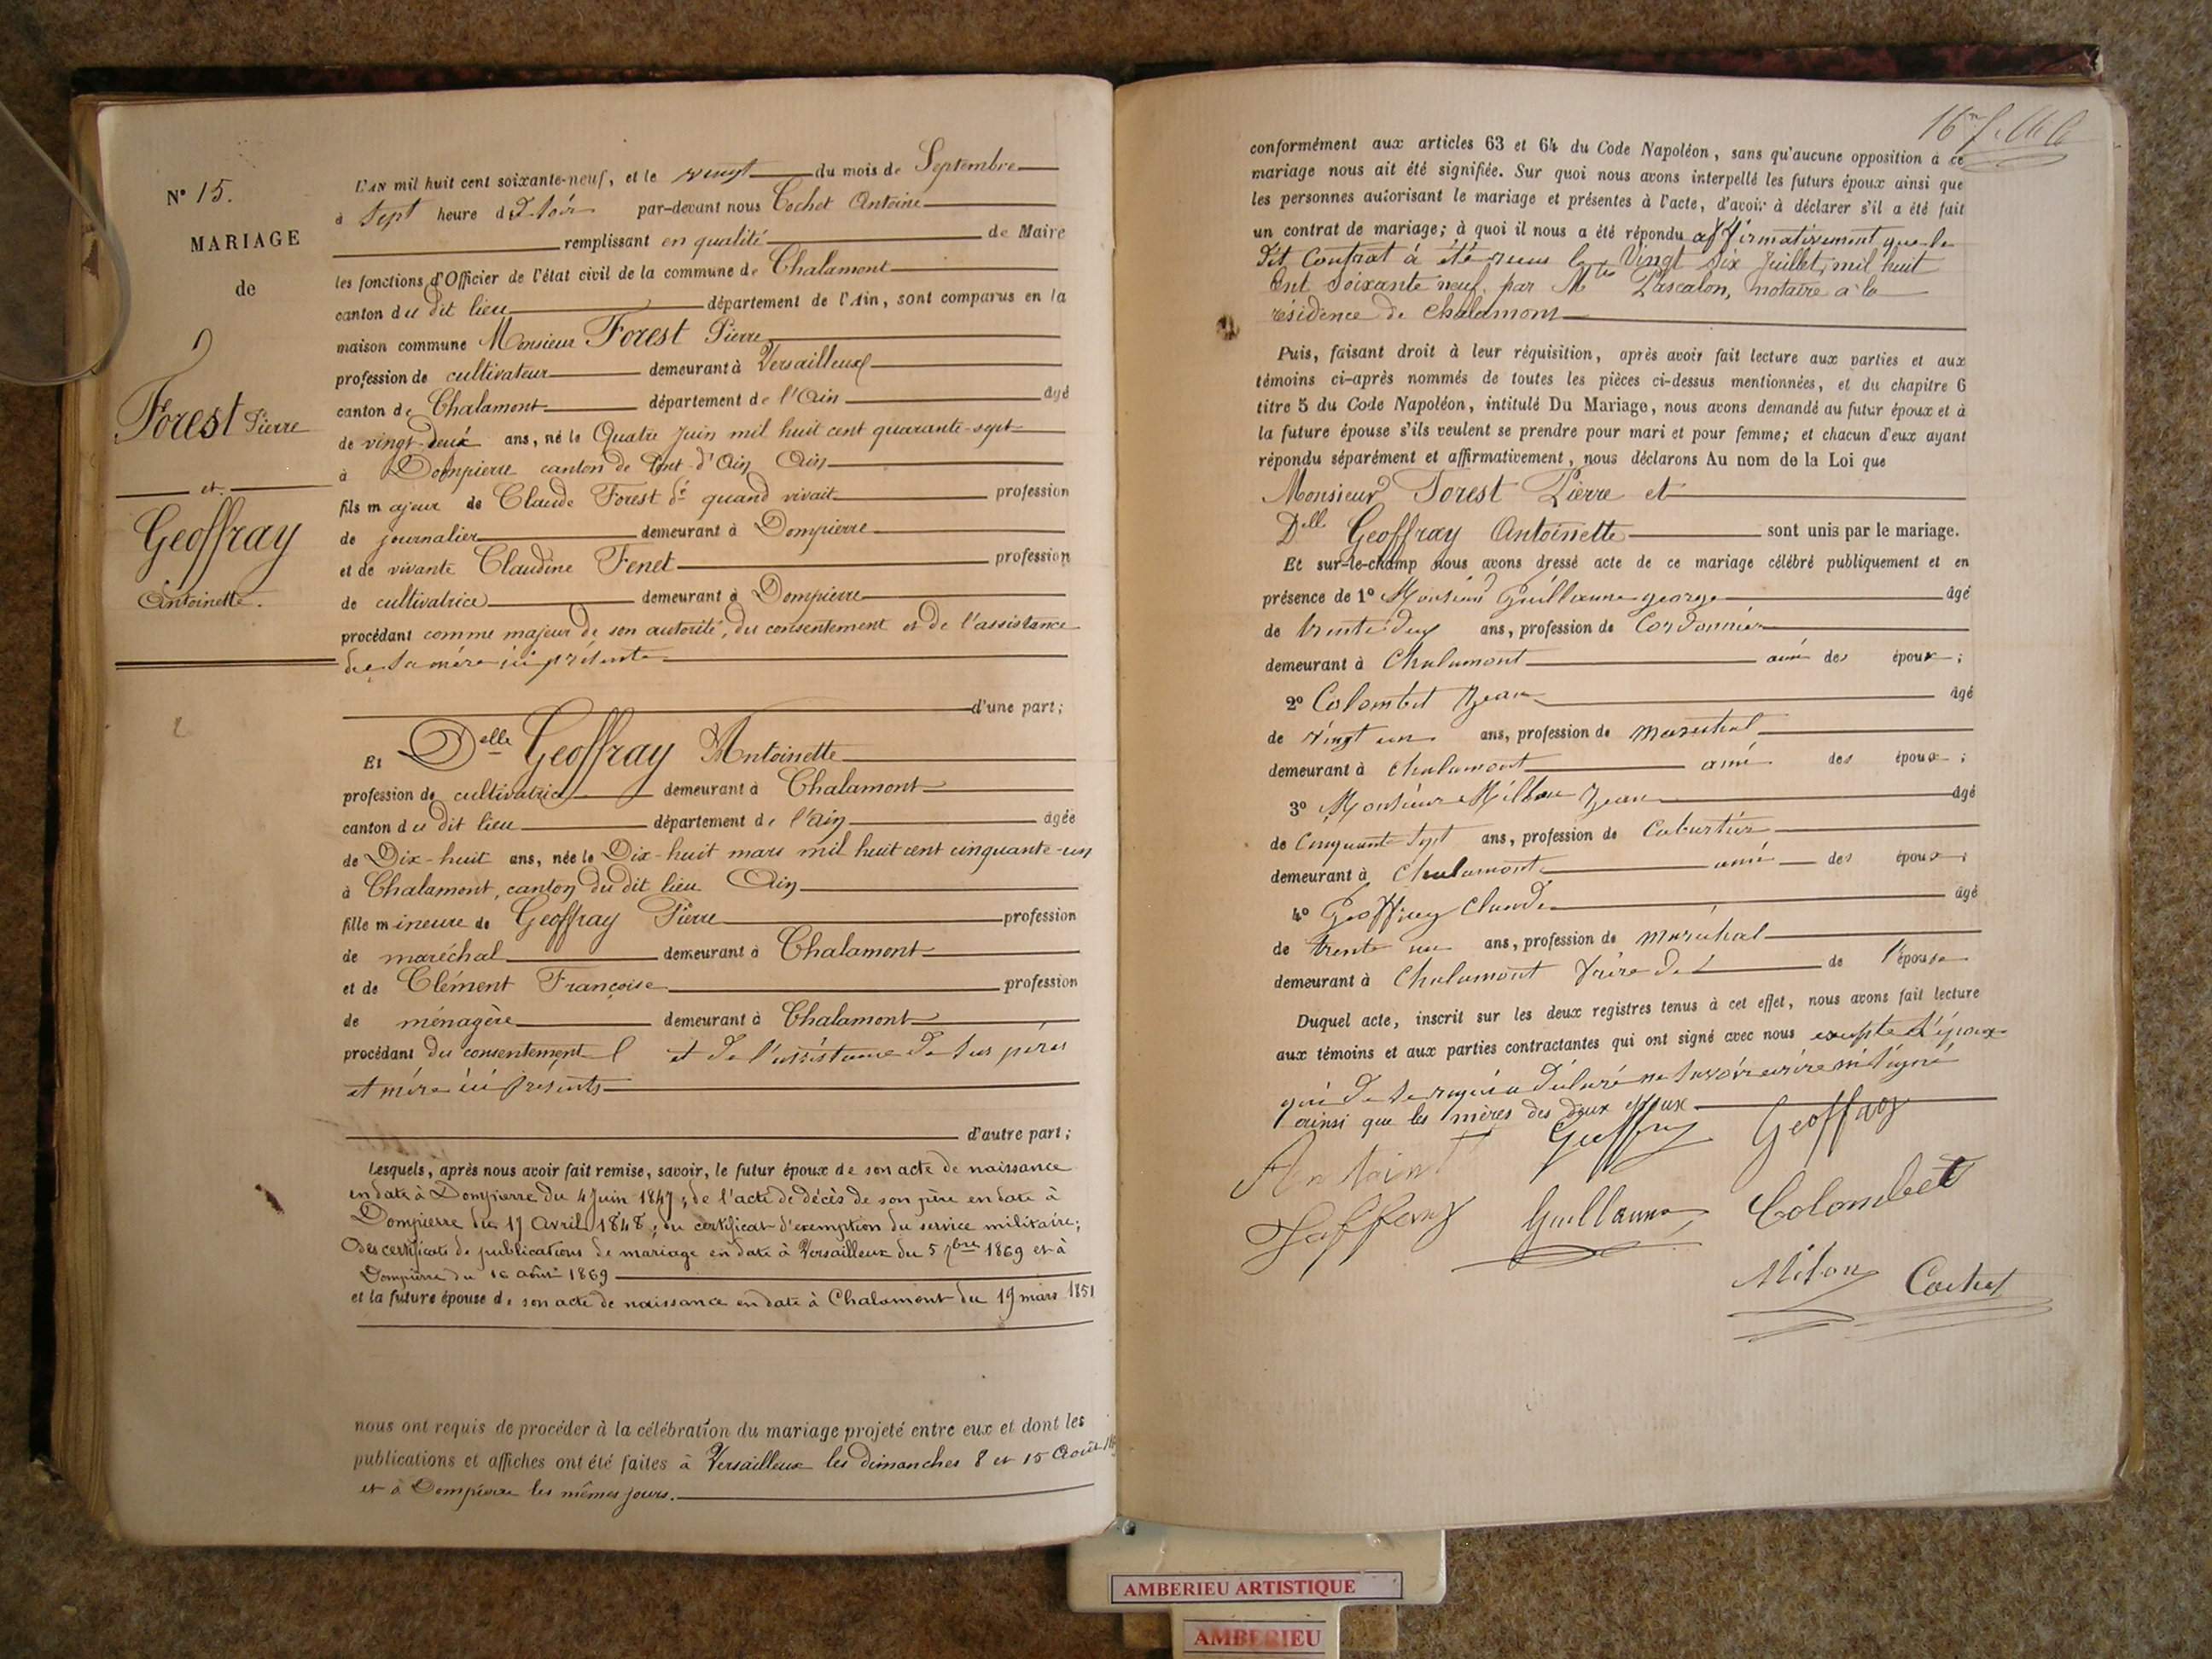 N° 15.
MARIAGE
de
Forest Pierre
et
Geoffray
Antoinette.
L'AN mil huit cent soixante-neuf, et le vingt du mois de Septembre
à sept heure du soir par-devant nous Cochet Antoine
remplissant en qualité de Maire
les fonctions d'Officier de l'état civil de la commune de Chalamont
canton du dit lieu département de l'Ain, sont comparus en la
maison commune Monsieur Forest Pierre
profession de cultivateur demeurant à Versailleux
canton de Chalamont département de l'Ain âgé
de vingt-deux ans, né le Quatre Juin mil huit cent quarante-sept
à Dompierre canton de Pont-d'Ain Ain
fils majeur de Claude Forest dé quand vivait profession
de journalier demeurant à Dompierre
et de vivante Claudine Fenet profession
de cultivatrice demeurant à Dompierre
procédant comme majeur de son autorité, du consentement et de l'assistance
de sa mère ici présente
d'une part;
Et Delle Geoffray Antoinette
profession de cultivatrice demeurant à Chalamont
canton du dit lieu département de l'Ain âgée
de Dix-huit ans, née le Dix-huit mars mil huit cent cinquante-un
à Chalamont, canton du dit lieu Ain
fille mineure de Geoffray Pierre profession
de maréchal demeurant à Chalamont
et de Clément Françoise profession
de ménagère demeurant à Chalamont
procédant du consentement et de l'assistance de ses père
et mère ici présents
d'autre part;
Lesquels, après nous avoir fait remise, savoir, le futur époux de son acte de naissance
en date à Dompierre du 4 Juin 1847; de l'acte de décès de son père en date à
Dompierre du 17 Avril 1848; du certificat d'exemption du service militaire;
Des certificats de publications de mariage en date à Versailleux du 5 7bre 1869 et à
Dompierre du 16 août 1869
et la future épouse de son acte de naissance en date à Chalamont du 19 mars 1851
nous ont requis de procéder à la célébration du mariage projeté entre eux et dont les
publications et affiches ont été faites à Versailleux les dimanches 8 et 15 Août
et à Dompierre les mêmes jours.
16me
conformément aux articles 63 et 64 du Code Napoléon, sans qu'aucune opposition à ce
mariage nous ait été signifiée. Sur quoi nous avons interpellé les futurs époux ainsi que
les personnes autorisant le mariage et présentes à l'acte, d'avoir à déclarer s'il a été fait
un contrat de mariage; à quoi il nous a été répondu affirmativement que le
dit Contrat à été reçu le Vingt six Juillet, mil huit
Cent Soixante neuf, par Mtre Pascalon, notaire à la
résidence de Chalamont
Puis, faisant droit à leur réquisition, après avoir fait lecture aux parties et aux
témoins ci-après nommés de toutes les pièces ci-dessus mentionnées, et du chapitre 6
titre 5 du Code Napoléon, intitulé Du Mariage, nous avons demandé au futur époux et à
la future épouse s'ils veulent se prendre pour mari et pour femme; et chacun d'eux ayant
répondu séparément et affirmativement, nous déclarons Au nom de la Loi que
Monsieur Forest Pierre et
Delle Geoffray Antoinette sont unis par le mariage.
Et sur-le-champ nous avons dressé acte de ce mariage célébré publiquement et en
présence de 1° Monsieur Guillaume george âgé
de trente deux ans, profession de Cordonnier
demeurant à Chalamont ami des époux;
2° Colombet Jean âgé
de vingt un ans, profession de maréchal
demeurant à Chalamont ami des époux;
3° Monsieur Millon Jean âgé
de Cinquante sept ans, profession de Cabartier
demeurant à Chalamont ami des époux;
4° Geoffray Claude âgé
de trente un ans, profession de maréchal
demeurant à Chalamont frère de de l'épouse
Duquel acte, inscrit sur les deux registres tenus à cet effet, nous avons fait lecture
aux témoins et aux parties contractantes qui ont signé avec nous excepté l'époux
qui de ce requis a déclaré ne savoir écrire ni signé
ainsi que les mères des deux époux
Antoinette Geoffray Geoffray
Geoffray Guillaume Colombet
Milon Cochet
AMBERIEU ARTISTIQUE
AMBERIEU